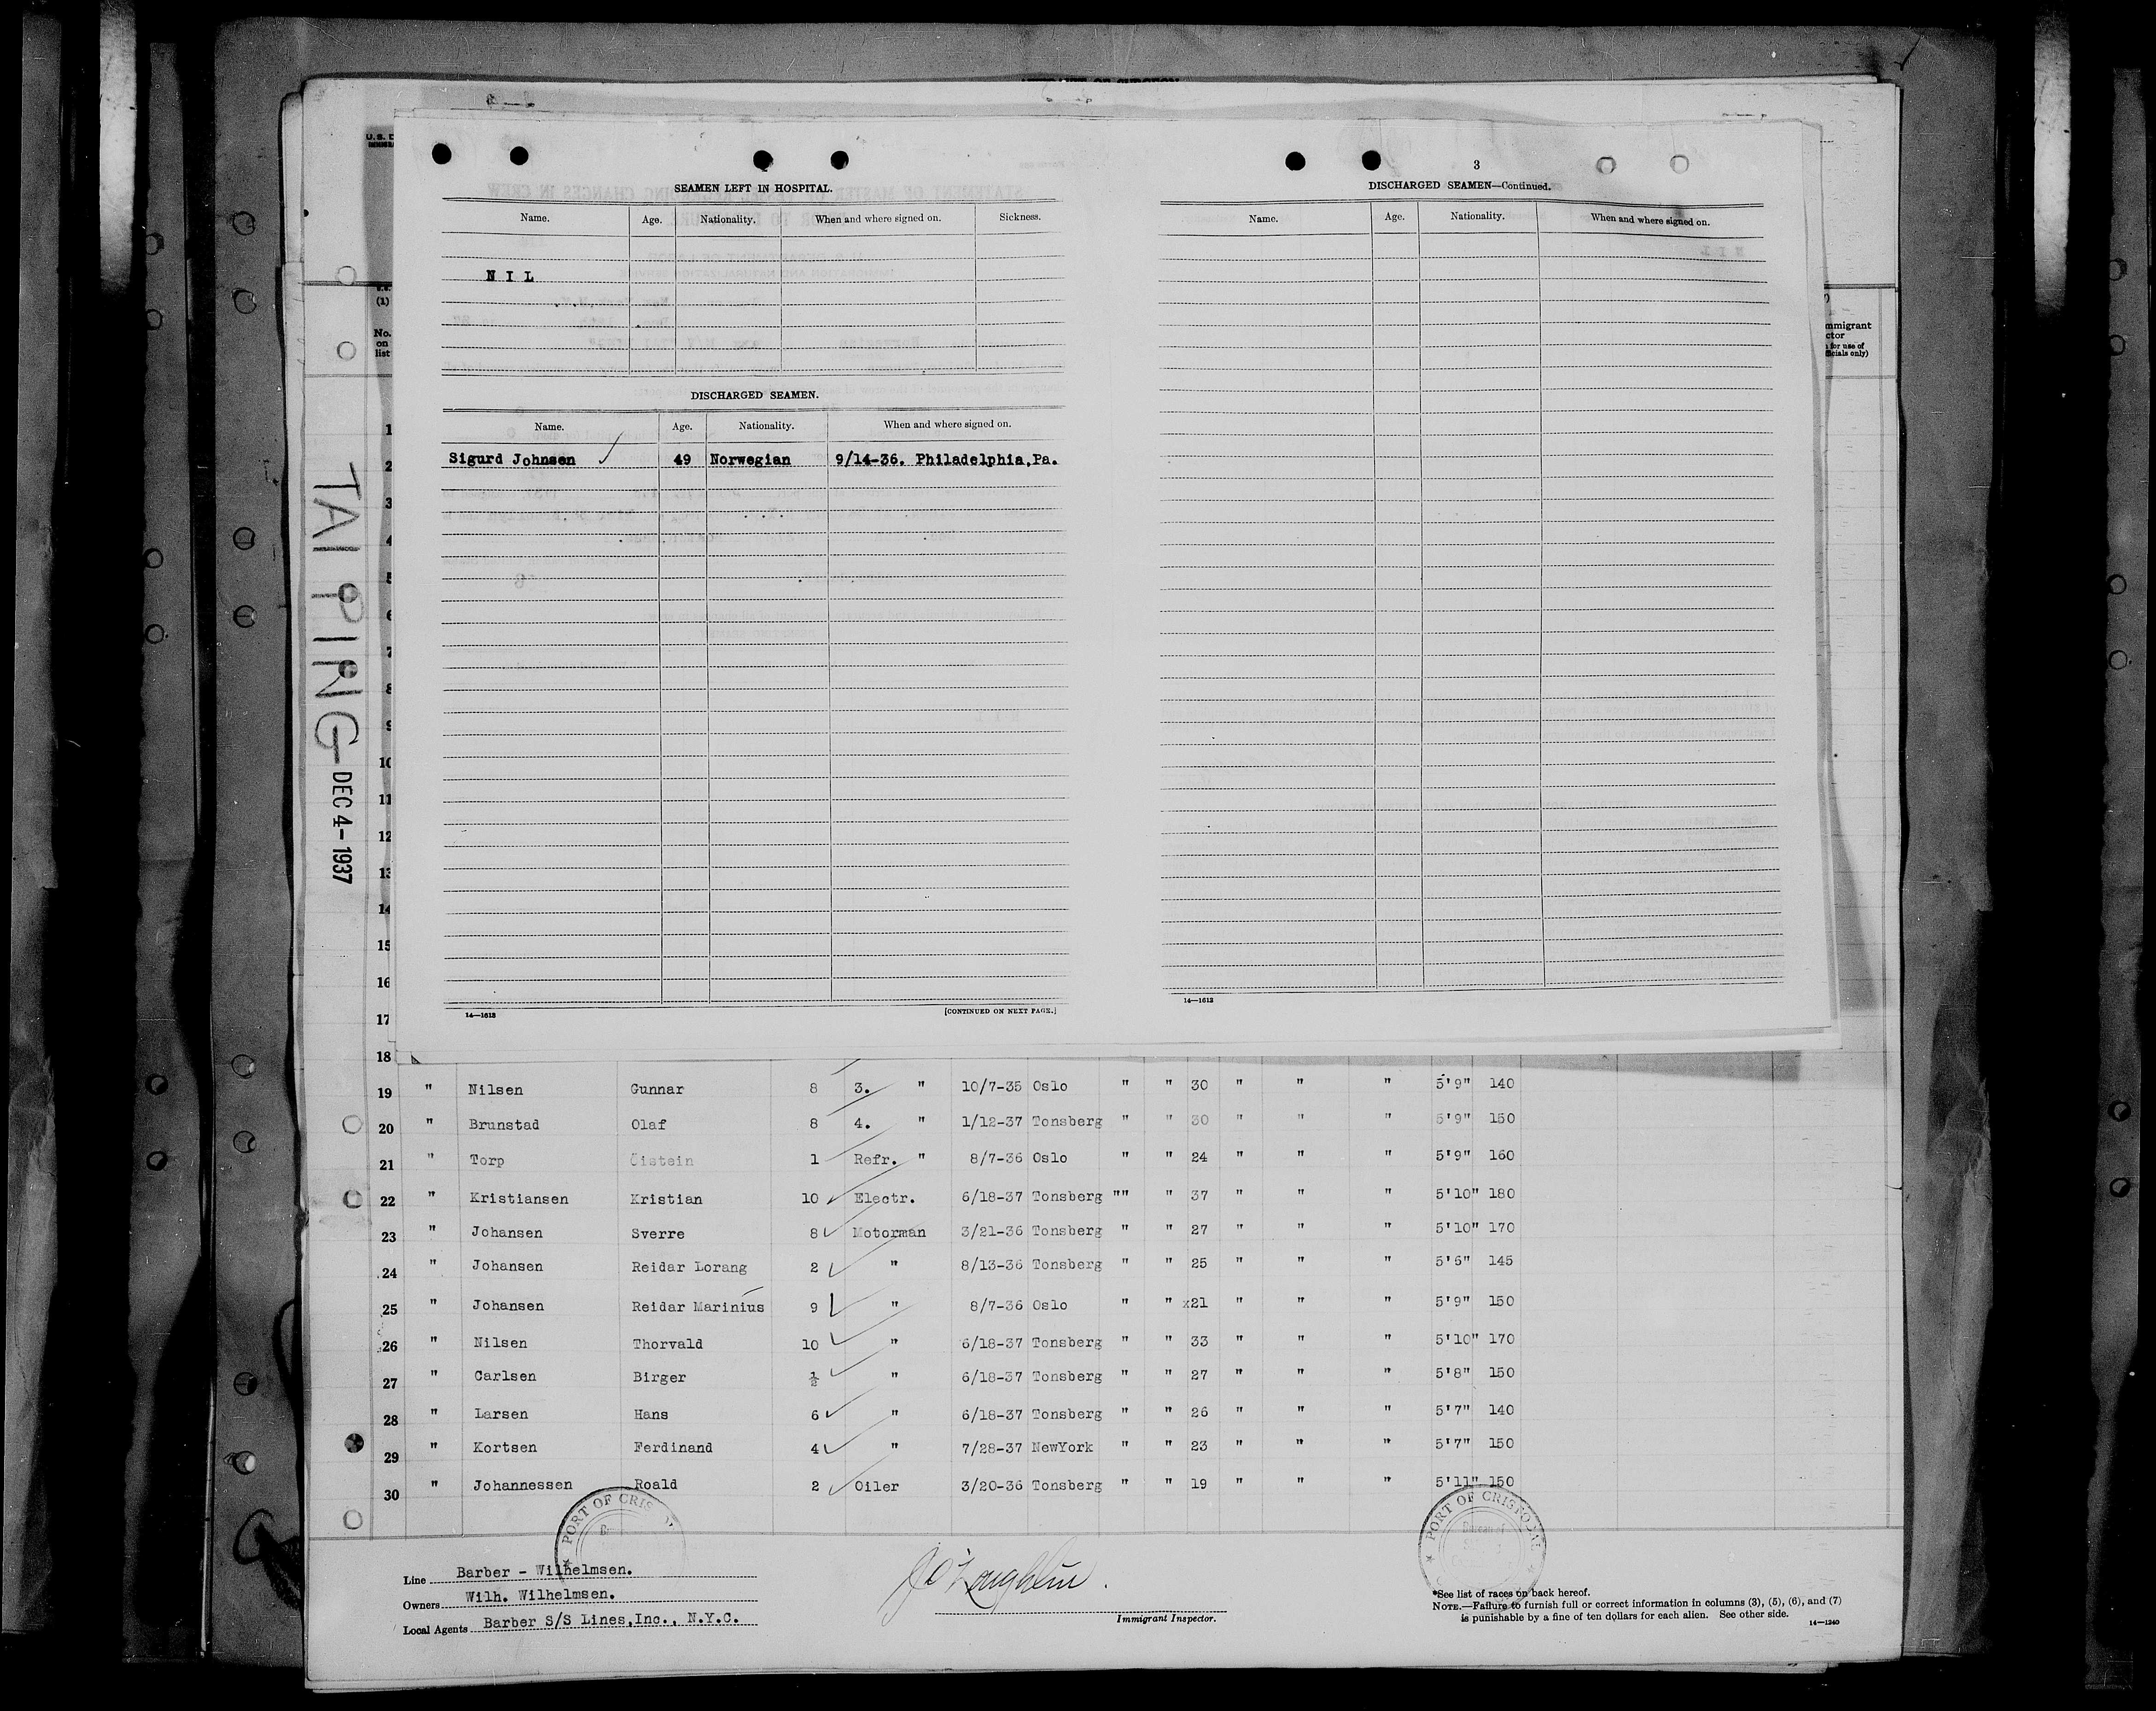 3
SEAMEN LEFT IN HOSPITAL.
Name. Age. Nationality. When and where signed on. Sickness.
N I L
DISCHARGED SEAMEN.
Name. Age. Nationality. When and where signed on.
Sigurd Johnsen 49 Norwegian 9/14-36. Philadelphia,Pa.
14—1613
[CONTINUED ON NEXT PAGE.]
DISCHARGED SEAMEN—Continued.
Name. Age. Nationality. When and where signed on.
14—1613
U. S. D
(1)
No.
on
list
mmigrant
ctor
for use of
ficials only)
TAI PING
DEC 4- 1937
1
2
3
4
5
6
7
8
9
10
11
12
13
14
15
16
17
18
19 " Nilsen Gunnar 8 3. " 10/7-35 Oslo " " 30 " " " 5'9" 140
20 " Brunstad Olaf 8 4. " 1/12-37 Tonsberg " " 30 " " " 5'9" 150
21 " Torp Öistein 1 Refr. " 8/7-36 Oslo " " 24 " " " 5'9" 160
22 " Kristiansen Kristian 10 Electr. 6/18-37 Tonsberg "" " 37 " " " 5'10" 180
23 " Johansen Sverre 8 Motorman 3/21-36 Tonsberg " " 27 " " " 5'10" 170
24 " Johansen Reidar Lorang 2 " 8/13-36 Tonsberg " " 25 " " " 5'6" 145
25 " Johansen Reidar Marinius 9 " 8/7-36 Oslo " " x21 " " " 5'9" 150
26 " Nilsen Thorvald 10 " 6/18-37 Tonsberg " " 33 " " " 5'10" 170
27 " Carlsen Birger ½ " 6/18-37 Tonsberg " " 27 " " " 5'8" 150
28 " Larsen Hans 6 " 6/18-37 Tonsberg " " 26 " " " 5'7" 140
29 " Kortsen Ferdinand 4 " 7/28-37 NewYork " " 23 " " " 5'7" 150
30 " Johannessen Roald 2 Oiler 3/20-36 Tonsberg " " 19 " " " 5'11" 150
PORT OF CRIS
PORT OF CRISTOBAL
Bureau of
Line Barber - Wilhelmsen.
Owners Wilh. Wilhelmsen.
Local Agents Barber S/S Lines,Inc., N.Y.C.
Immigrant Inspector.
*See list of races on back hereof.
NOTE.—Failure to furnish full or correct information in columns (3), (5), (6), and (7)
is punishable by a fine of ten dollars for each alien. See other side.
14—1240